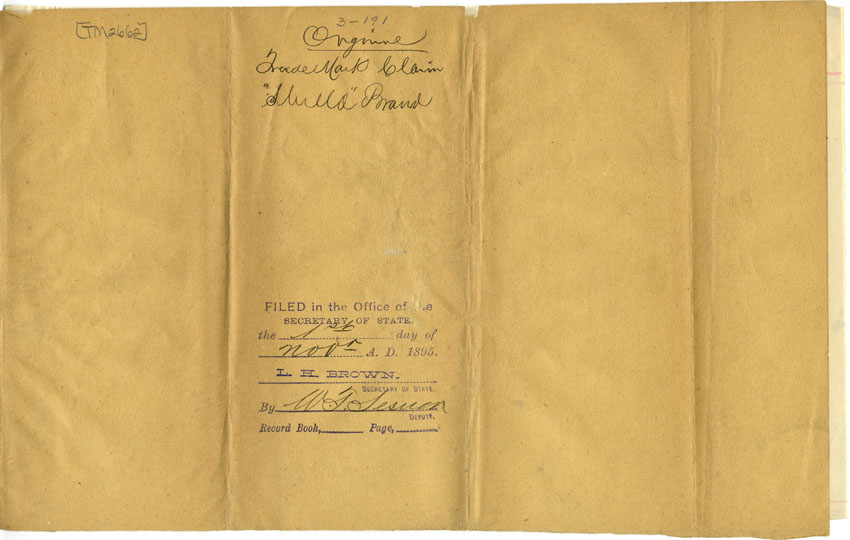 [TM2662]
3-191
Trade Mark Claim
Brand
FILED in the Office of the
SECRETARY OF STATE,
the 1st day of
Novr A. D. 1895.
L. H. BROWN.
SECRETARY OF STATE.
By W. F.
DEPUTY.
Record Book, Page,